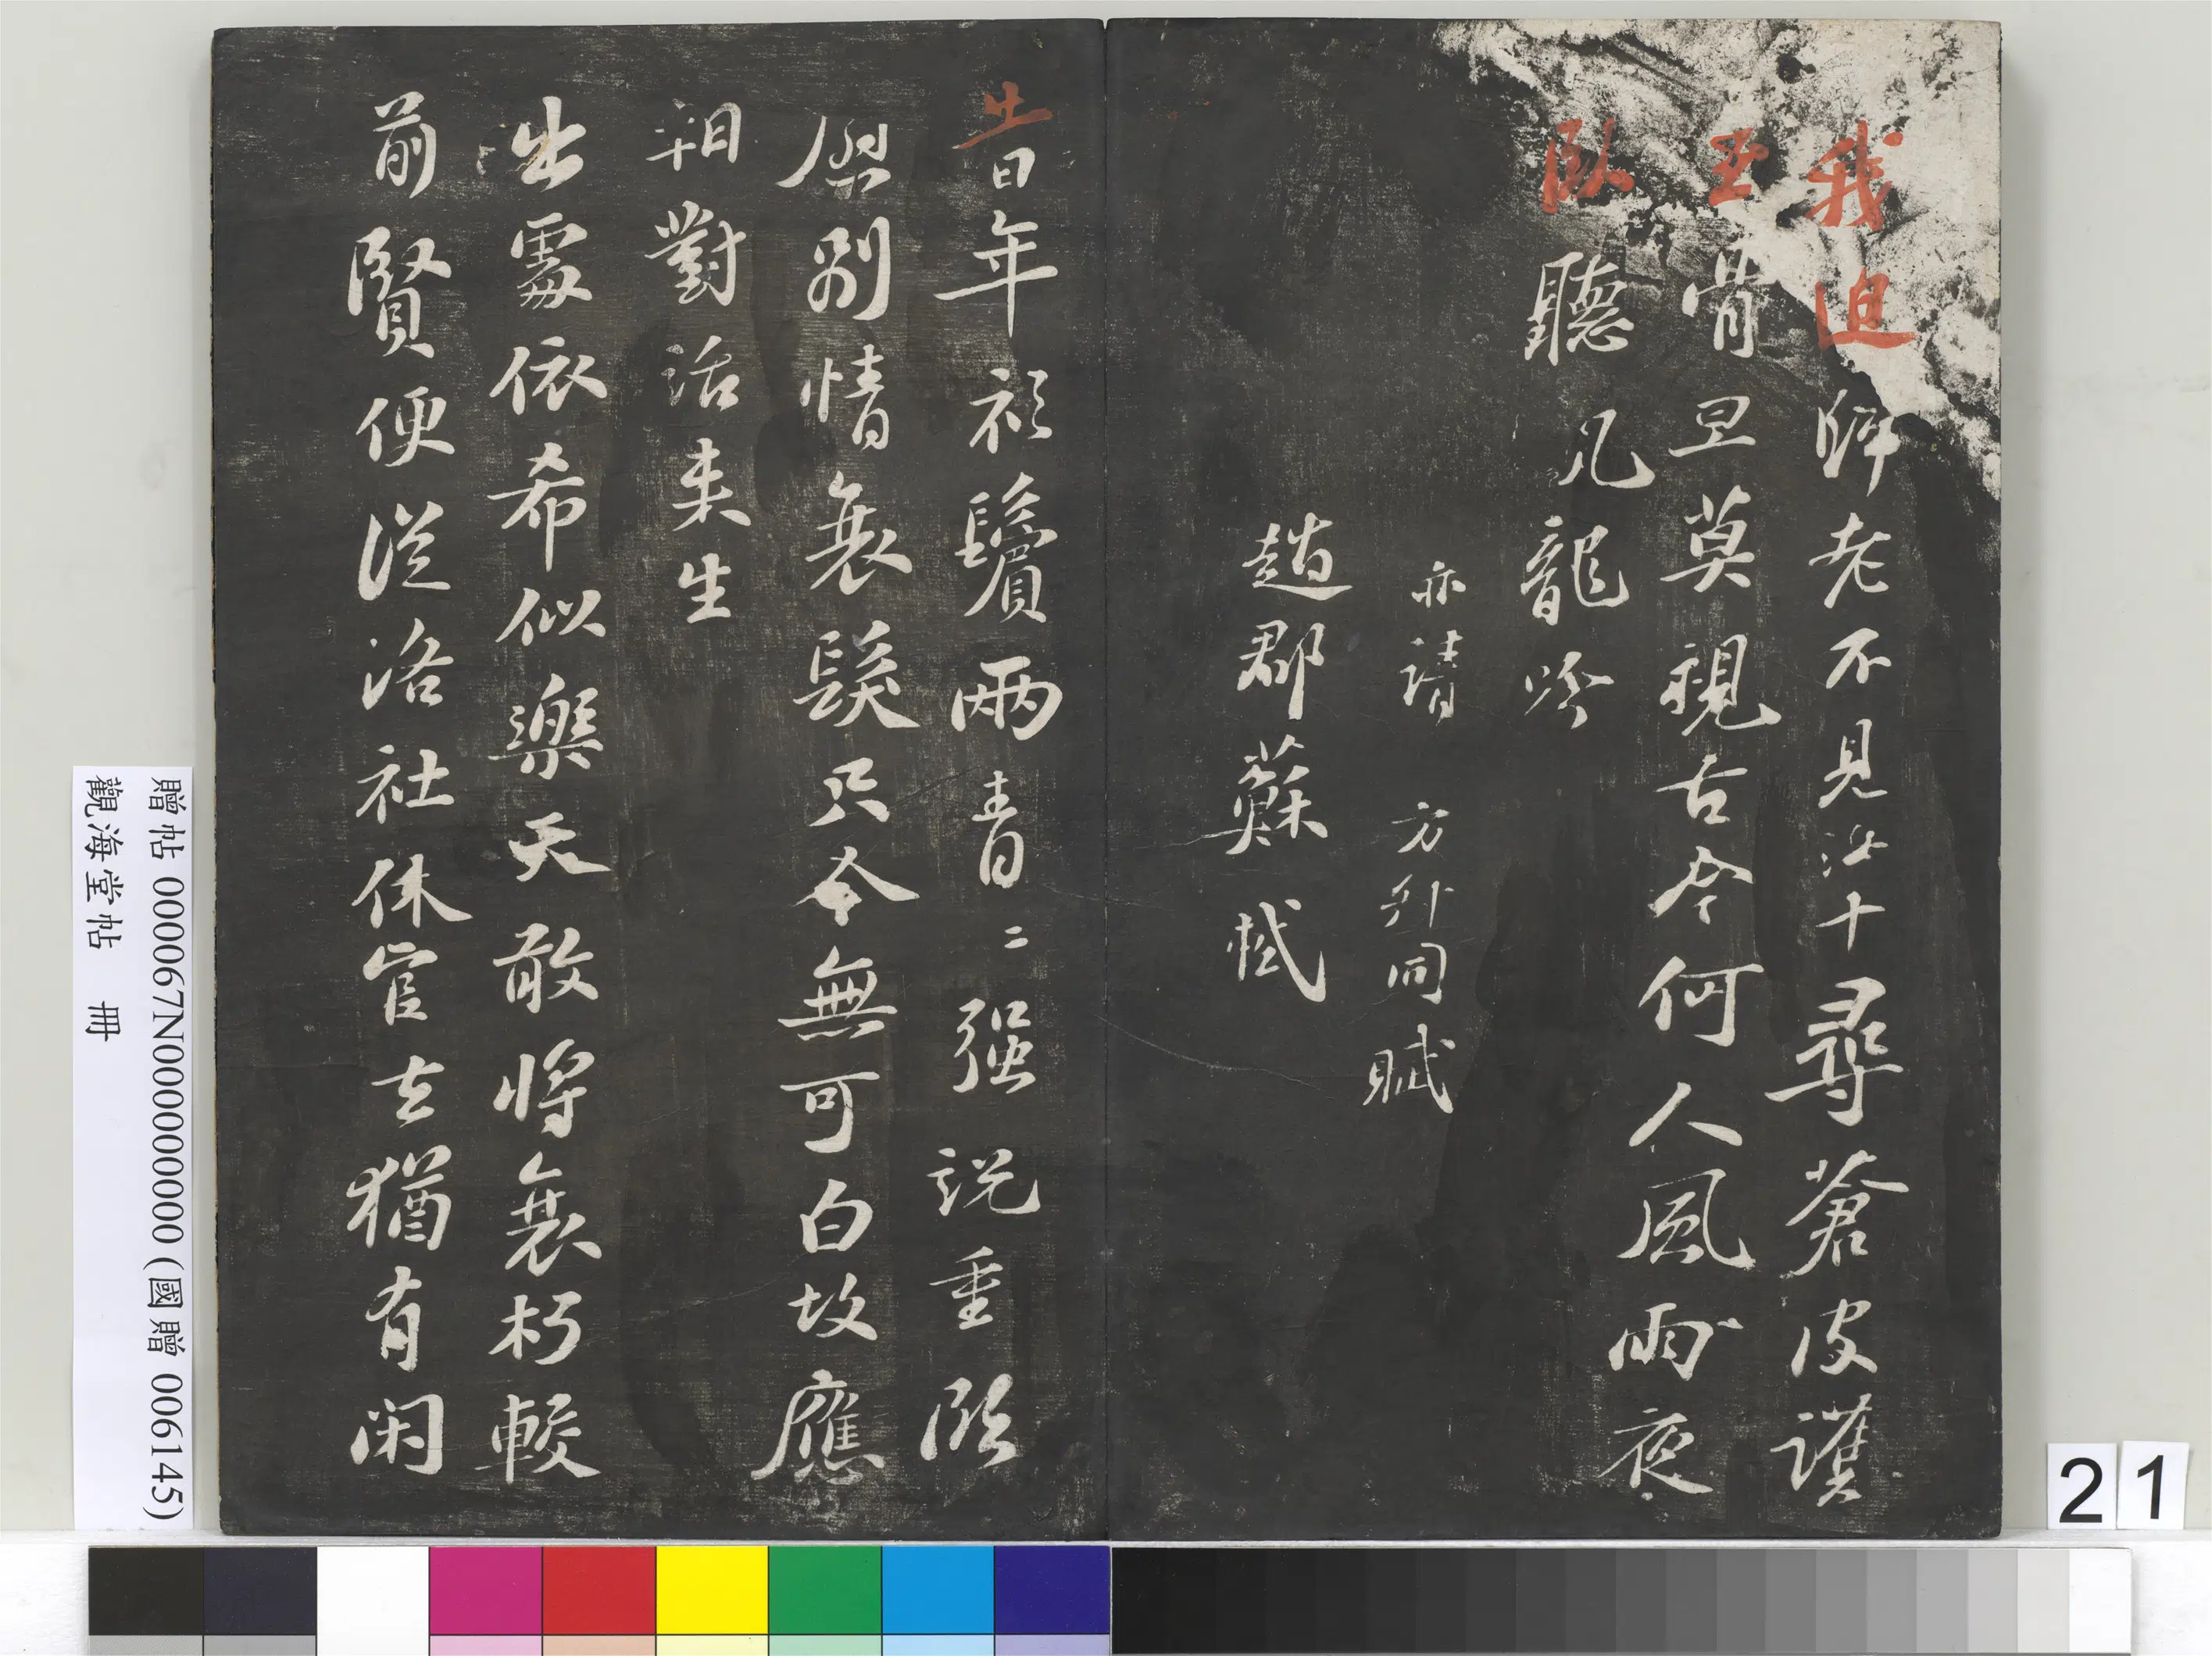 我迫歸老不見汝十尋蒼皮護
玉骨旦莫視古今何人風雨夜
臥聽凡龍吟
亦請 方外同賦
趙郡蘇軾
昔年衫鬢兩青〻强説重臨
慰別情衰髮只今無可白故應
相對話来生
出處依希似樂天敢將衰朽較
前賢便從洛社休官去猶有閑
贈帖 000067N000000000 (國贈 006145)
觀海堂帖 冊
21